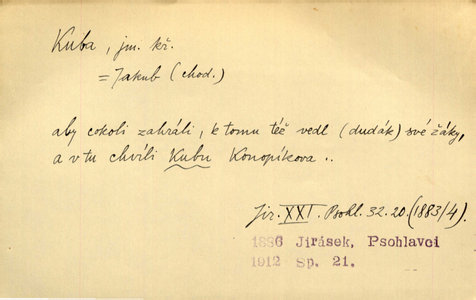 Kuba, jm. kř.
= Jakub (chod.)
aby cokoli zahráli, k tomu též vedl (dudák) své žáky,
a v tu chvíli Kubu Konopíkova..
Jir. XXI. Psohl. 32.20. (1883/4).
1886 Jirásek, Psohlavci
1912 Sp. 21.